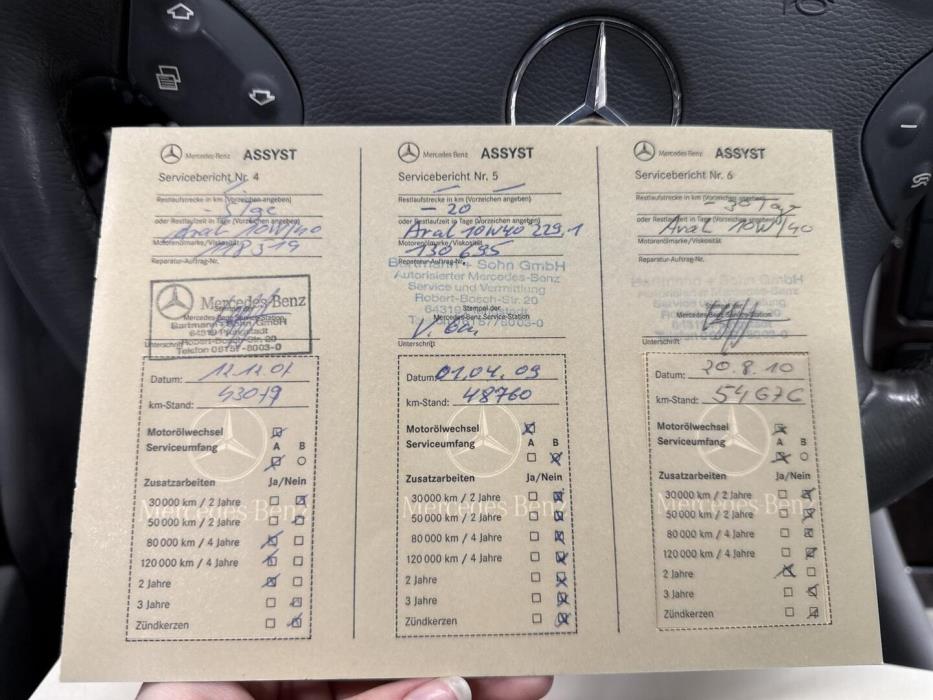 Mercedes-Benz ASSYST
Servicebericht Nr. 4
Restlaufstrecke in km (Vorzeichen angeben)
oder Restlaufzeit in Tage (Vorzeichen angeben)
Aral 10W/40
Motorenölmarke/Viskosität
Reparatur-Auftrag-Nr.
Mercedes-Benz
Mercedes-Benz Service-Station
Bartmann + Sohn GmbH
Robert-Bosch-Str. 20
Unterschrift
Telefon
Datum:
km-Stand:
Motorölwechsel
Serviceumfang A B
Zusatzarbeiten Ja/Nein
30 000 km / 2 Jahre
50 000 km / 2 Jahre
80 000 km / 4 Jahre
120 000 km / 4 Jahre
2 Jahre
3 Jahre
Zündkerzen
Mercedes-Benz ASSYST
Servicebericht Nr. 5
Restlaufstrecke in km (Vorzeichen angeben)
- 20
oder Restlaufzeit in Tage (Vorzeichen angeben)
Aral 10W40 229,1
Motorenölmarke/Viskosität
130 695
Reparatur-Auftrag-Nr.
Bartmann + Sohn GmbH
Autorisierter Mercedes-Benz
Service und Vermittlung
Robert-Bosch-Str. 20
Stempel der
Mercedes-Benz Service-Station
Unterschrift
Datum: 01.04.09
km-Stand: 48760
Motorölwechsel
Serviceumfang A B
Zusatzarbeiten Ja/Nein
30 000 km / 2 Jahre
50 000 km / 2 Jahre
80 000 km / 4 Jahre
120 000 km / 4 Jahre
2 Jahre
3 Jahre
Zündkerzen
Mercedes-Benz ASSYST
Servicebericht Nr. 6
Restlaufstrecke in km (Vorzeichen angeben)
- 30 Tag
oder Restlaufzeit in Tage (Vorzeichen angeben)
Aral 10W/40
Motorenölmarke/Viskosität
Reparatur-Auftrag-Nr.
Bartmann + Sohn GmbH
Mercedes-Benz Service-Station
Unterschrift
Datum: 20.8.10
km-Stand: 54676
Motorölwechsel
Serviceumfang A B
Zusatzarbeiten Ja/Nein
30 000 km / 2 Jahre
50 000 km / 2 Jahre
80 000 km / 4 Jahre
120 000 km / 4 Jahre
2 Jahre
3 Jahre
Zündkerzen